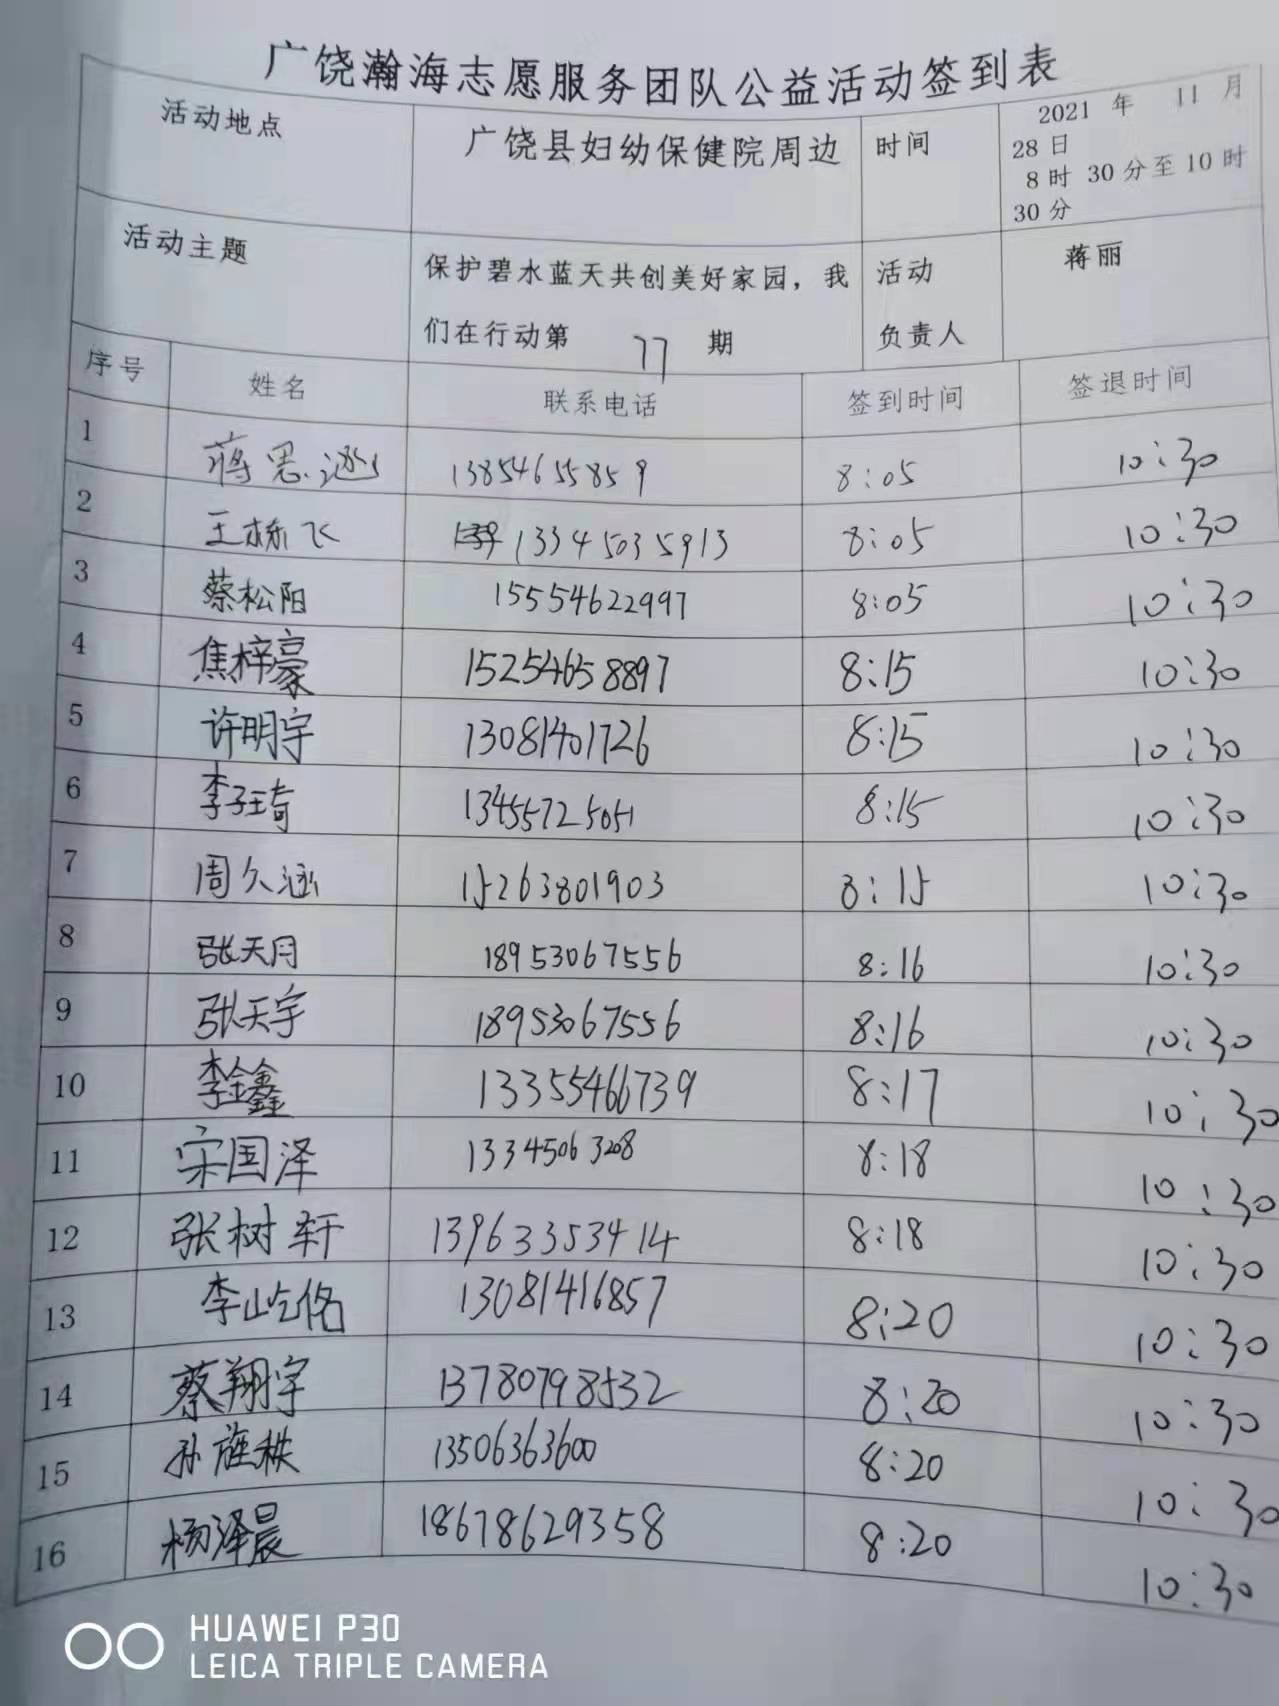 广饶瀚海志愿服务团队公益活动签到表
活动地点 广饶县妇幼保健院周边 时间 2021 年 11 月
28 日
8 时 30 分至 10 时
30 分
活动主题 保护碧水蓝天共创美好家园，我 活动 蒋丽
们在行动第 77 期 负责人
序号 姓名 联系电话 签到时间 签退时间
1 蒋思逊 13854655859 8:05 10:30
2 王栋飞 13345035913 8:05 10:30
3 蔡松阳 15554622997 8:05 10:30
4 焦梓豪 15254658897 8:15 10:30
5 许明宇 13081401726 8:15 10:30
6 李子琦 13455725051 8:15 10:30
7 周久涵 15263801903 8:15 10:30
8 张天月 18953067556 8:16 10:30
9 张天宇 18953067556 8:16 10:30
10 李金鑫 13355466739 8:17 10:30
11 宋国泽 13345063208 8:18 10:30
12 张树轩 13963353414 8:18 10:30
13 李屹佲 13081416857 8:20 10:30
14 蔡翔宇 13780798532 8:20 10:30
15 孙旌轶 13506363600 8:20 10:30
16 杨泽晨 18678629358 8:20 10:30
HUAWEI P30
LEICA TRIPLE CAMERA